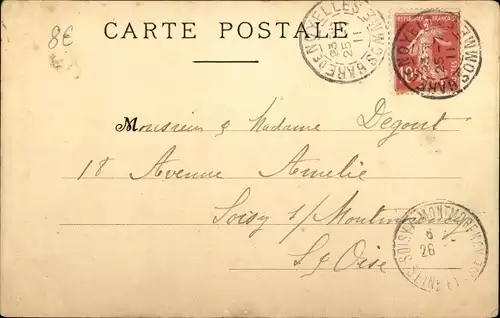 8€
CARTE POSTALE
GARE DE NOYELLES SOMME
25
11
REPUBLIQUE FRANÇAISE
GARE NOYE SOMME
25
11
Monsieur & Madame Degout
18 Avenue Amélie
Soisy s/ Montmorency
S & Oise
SOISY-S-MONTMORENCY
6
26
SEINE-ET-OISE